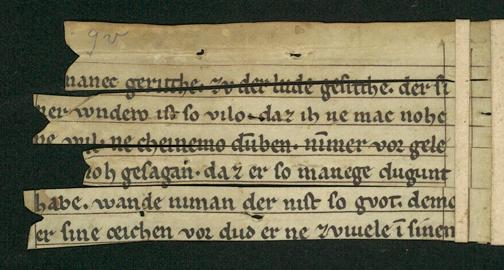 9v
manec geruche. zv der lude gesuche. der si
ner wnderо ist so vilo. daz ih ne mac nohe
ne wil. ne cheinemo duben. nimer vor gele
noh gesagan. daz er so manege dugunt
habe. wande niman der nist so gvot. demo
er sine ceichen vor duo er ne zvivele in sinen